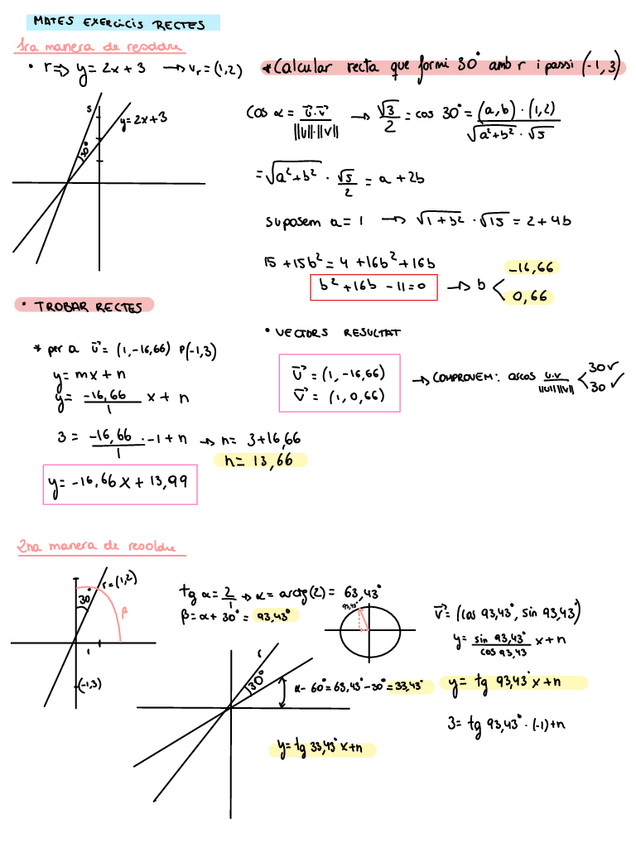 MATES EXERCICIS RECTES
1ra manera de resoldre
• r ⇒ y = 2x + 3 → v_r = (1,2)
* Calcular recta que formi 30° amb r i passi (-1,3)
s
y = 2x + 3
30°
cos α = u⃗·v⃗ / ||u||·||v|| → √3/2 = cos 30° = (a,b)·(1,2) / √a²+b² · √5
= √a²+b² · √5/2 = a + 2b
suposem a = 1 → √1+b² · √15 = 2 + 4b
15 + 15b² = 4 + 16b² + 16b
b² + 16b - 11 = 0 → b < -16,66
0,66
• TROBAR RECTES
* per a u⃗ = (1,-16,66) P(-1,3)
y = mx + n
y = -16,66/1 x + n
3 = -16,66/1 · -1 + n → n = 3 + 16,66
n = 13,66
y = -16,66x + 13,99
• VECTORS RESULTAT
u⃗ = (1, -16,66)
v⃗ = (1, 0,66)
→ COMPROVEM: arcos u·v / ||u|| ||v|| < 30 ✓
30 ✓
2na manera de resoldre
r = (1,2)
30°
β
1
(-1,3)
tg α = 2/1 → α = arctg(2) = 63,43°
β = α + 30° = 93,43°
93,43°
v⃗ = (cos 93,43°, sin 93,43°)
y = sin 93,43° / cos 93,43 x + n
y = tg 93,43° x + n
3 = tg 93,43° · (-1) + n
r
30°
α - 60° = 63,43° - 30° = 33,43°
y = tg 33,43° x + n